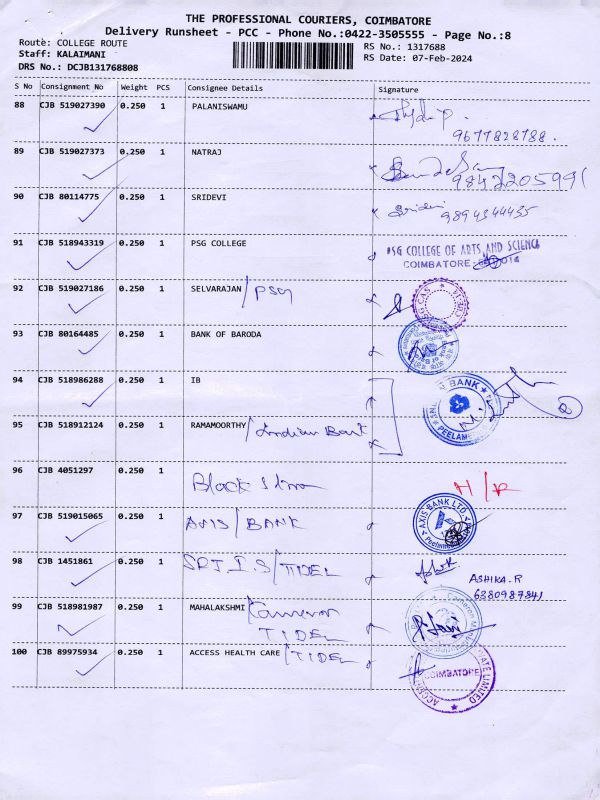 THE PROFESSIONAL COURIERS, COIMBATORE
Delivery Runsheet - PCC - Phone No.:0422-3505555 - Page No.:8
Route: COLLEGE ROUTE
Staff: KALAIMANI
DRS No.: DCJB131768808
RS No.: 1317688
RS Date: 07-Feb-2024
S No Consignment No Weight PCS Consignee Details Signature
88 CJB 519027390 0.250 1 PALANISWAMU
9677828788.
89 CJB 519027373 0.250 1 NATRAJ
9842205991
90 CJB 80114775 0.250 1 SRIDEVI Sridevi
9894344435
91 CJB 518943319 0.250 1 PSG COLLEGE PSG COLLEGE OF ARTS AND SCIENCE
COIMBATORE
92 CJB 519027186 0.250 1 SELVARAJAN / PSG
93 CJB 80164485 0.250 1 BANK OF BARODA
94 CJB 518986288 0.250 1 IB
BANK
PEELAMEDU
95 CJB 518912124 0.250 1 RAMAMOORTHY / Indian Bank
96 CJB 4051297 0.250 1
Block
97 CJB 519015065 0.250 1 AXIS / BANK AXIS BANK LTD.
98 CJB 1451861 0.250 1 / TIDEL
ASHIKA.R
6380987841
99 CJB 518981987 0.250 1 MAHALAKSHMI / Cameron
TIDEL
100 CJB 89975934 0.250 1 ACCESS HEALTH CARE / TIDEL
COIMBATORE